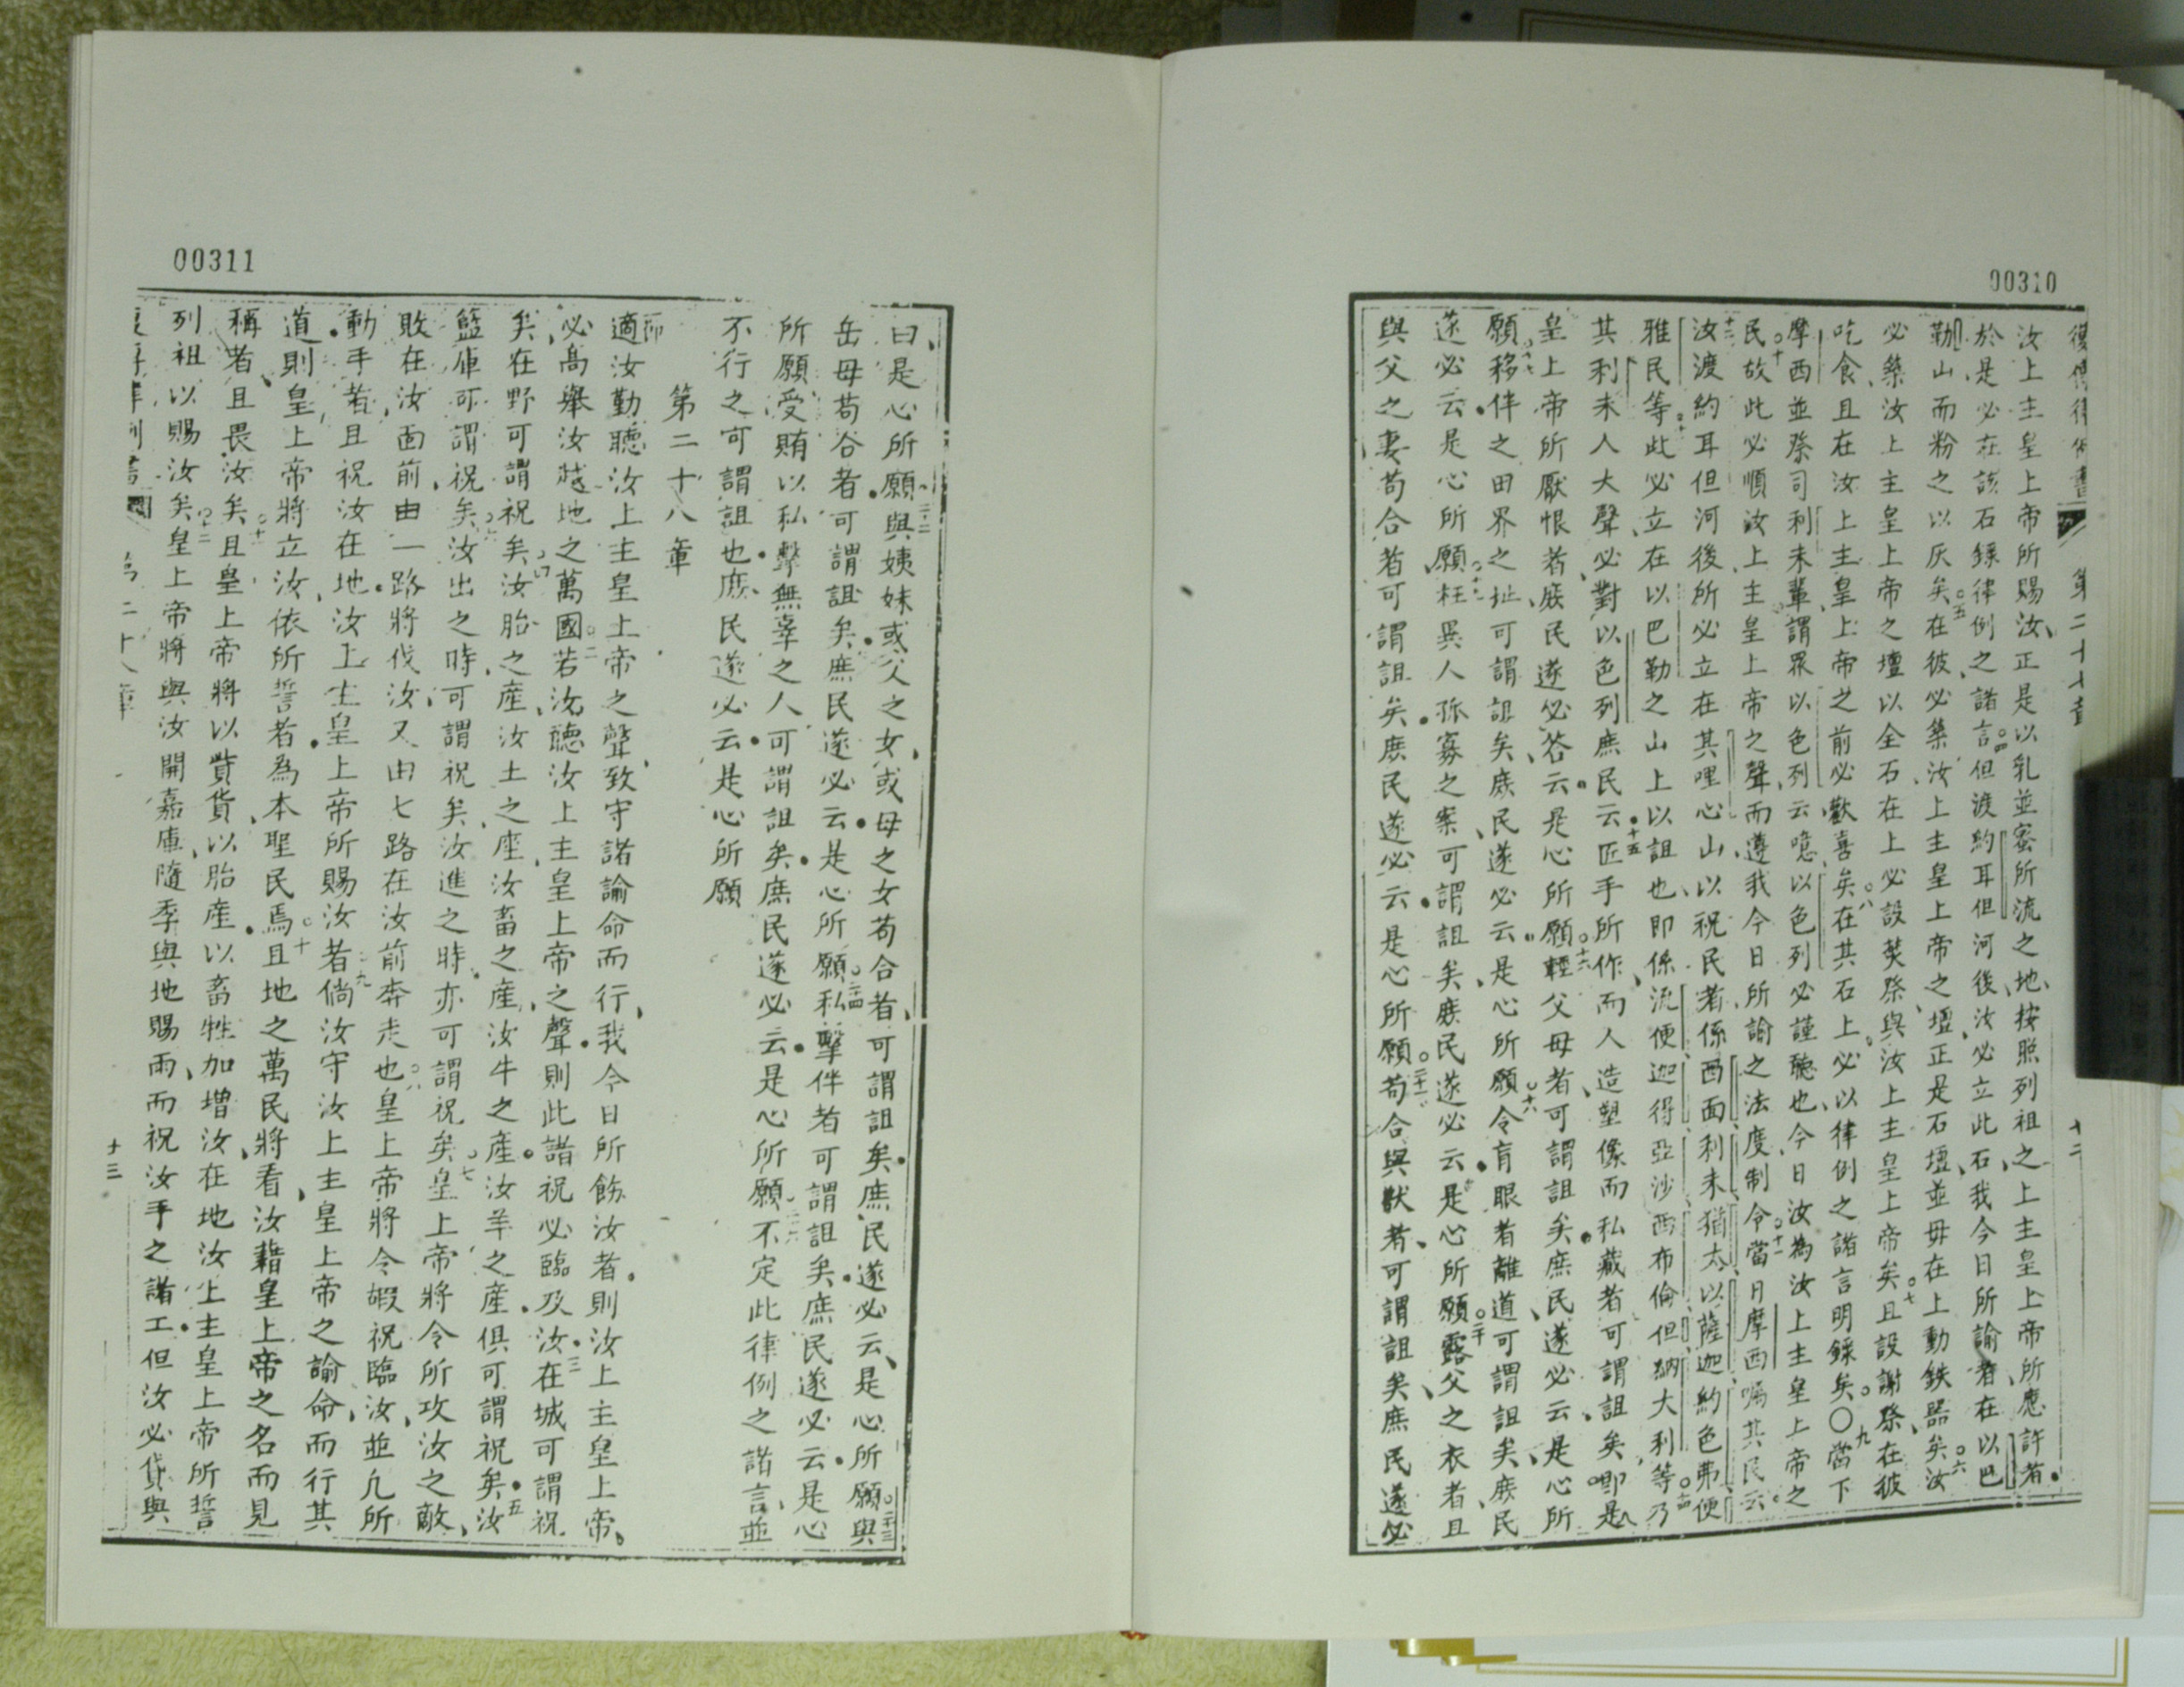 00310
復傳律例書 第二十七章 十二
汝上主皇上帝所賜汝正是以乳並蜜所流之地按照列祖之上主皇上帝所應許者
於是必在該石錄律例之諸言○四但渡約耳但河後汝必立此石我今日所諭者在以巴
勒山而粉之以灰矣○五在彼必築汝上主皇上帝之壇正是石壇並毋在上動鉄器矣○六汝
必築汝上主皇上帝之壇以全石在上必設焚祭與汝上主皇上帝矣○七且設謝祭在彼
吃食且在汝上主皇上帝之前必歡喜矣○八在其石上必以律例之諸言明錄矣○○九當下
摩西並祭司利未輩謂眾以色列云噫以色列必謹聽也今日汝為汝上主皇上帝之
民○十故此必順汝上主皇上帝之聲而遵我今日所諭之法度制令○十一當日摩西囑其民云
十二汝渡約耳但河後所必立在其哩心山以祝民者係西面利未猶太以薩迦約色弗便
雅民等○十三此必立在以巴勒之山上以詛也即係流便迦得亞沙西布倫但納大利等○十四乃
其利未人大聲必對以色列庶民云○十五匠手所作而人造塑像而私藏者可謂詛矣即是
皇上帝所厭恨者庶民遂必答云是心所願○十六輕父母者可謂詛矣庶民遂必云是心所
願○十七移伴之田界之址可謂詛矣庶民遂必云是心所願○十八令盲眼者離道可謂詛矣庶民
遂必云是心所願○十九枉異人孤寡之案可謂詛矣庶民遂必云是心所願○二十露父之衣者且
與父之妻苟合者可謂詛矣庶民遂必云是心所願○二十一苟合與獸者可謂詛矣庶民遂必
00311
曰是心所願○二十二與姨妹或父之女或母之女苟合者可謂詛矣庶民遂必云是心所願○二十三與
岳母苟合者可謂詛矣庶民遂必云是心所願○二十四私擊伴者可謂詛矣庶民遂必云是心
所願○二十五受賄以私擊無辜之人可謂詛矣庶民遂必云是心所願○二十六不定此律例之諸言並
不行之可謂詛也庶民遂必云是心所願
第二十八章
適汝勤聽汝上主皇上帝之聲致守諸諭命而行我今日所飭汝者則汝上主皇上帝
必高舉汝越地之萬國○二若汝聽汝上主皇上帝之聲則此諸祝必臨及汝○三在城可謂祝
矣在野可謂祝矣○四汝胎之產汝土之產汝畜之產汝牛之產汝羊之產俱可謂祝矣○五汝
籃庫可謂祝矣○六汝出之時可謂祝矣汝進之時亦可謂祝矣○七皇上帝將令所攻汝之敵
敗在汝面前由一路將伐汝又由七路在汝前奔走也○八皇上帝將令嘏祝臨汝並凢所
動手者且祝汝在地汝上主皇上帝所賜汝者○九倘汝守汝上主皇上帝之諭命而行其
道則皇上帝將立汝依所誓者為本聖民焉○十且地之萬民將看汝藉皇上帝之名而見
稱者且畏汝矣○十一且皇上帝將以貲貨以胎產以畜牲加增汝在地汝上主皇上帝所誓
列祖以賜汝矣○十二皇上帝將與汝開嘉庫隨季與地賜雨而祝汝手之諸工但汝必貸與
第二十八章 十三